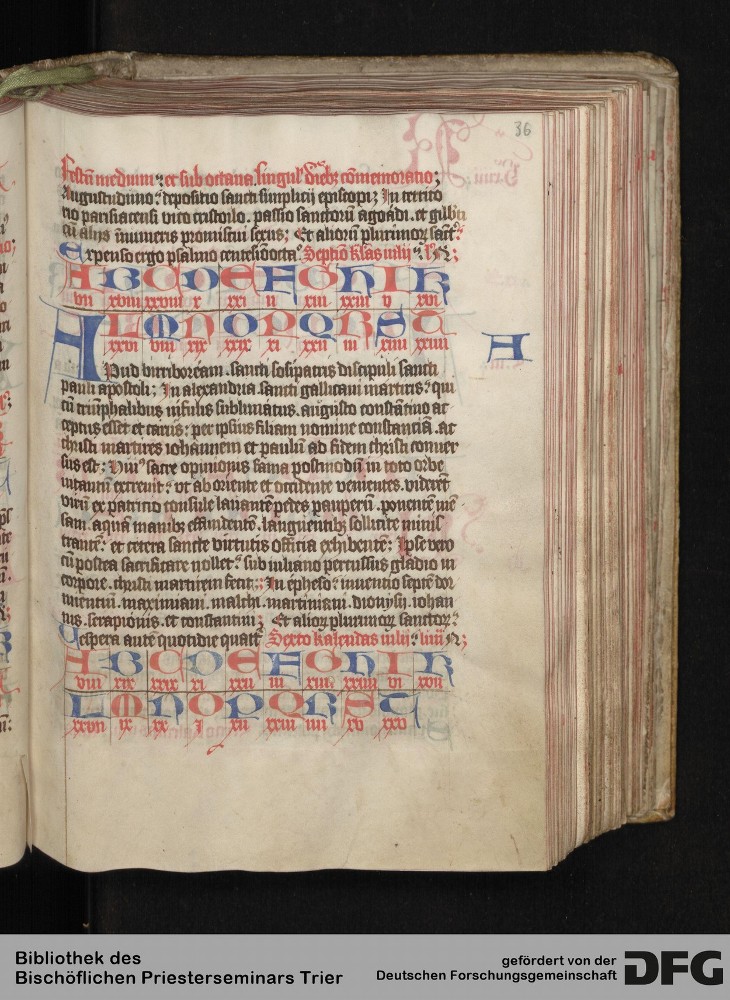 36
Festū medium et sub octaua singul' dieb; cōmemoratio;
Augustuduno depositio sancti simplicij episcopi; In territo
rio parisiacensi vico cristoilo . passio sanctorū agoadi . et gilb
cū alijs īnumeris promiscui sexus; Et alioruɱ plurimoꝝ sanct
Expenso ergo psalmo centesi octa Septīo kl'as iulij
A B C D E F G H I K
vii xviii xxviii x xxi ii xiii xxiii v xvi
L M N O P Q R S T
xxvi viii xix xxix xi xxii iii xiiii xxiiii
A
APud birriboream . sancti sosipatris discipuli sancti
pauli apostoli; In alexandria sancti gallicani martiris qui
cū triūphalibus infulis sublimatus . augusto constātino ac
ceptus esset et carus: per ipsius filiam nomine constanciā . ac
christi martires iohannem et paulū ad fidem christi conuer
sus est; sacre opinionis fama postmodū in toto orbe
intantū excreuit vt ab oriente et occidente venientes . viderēt
virū ex patricio consule lauantē pedes pauperū . ponentē mē
sam . aquā manib; effundentē . languentib; sollicite minis
trantē et cetera sancte virtutis officia exhibentē; Ipse vero
cū postea sacrificare nollet sub iuliano percussus gladio in
corpore . christi martirem fecit; In epheso inuentio septē dor
mientiū . maximiani . malchi . martiniani . dionysij . iohan
nis . serapionis . et constantini; Et alioꝝ plurimoꝝ sanctoꝝ
Vespera autē quotidie Sexto kalendas iulij
A B C D E F G H I K
viii xix xxix xi xxii iii xiii xxiiii vi xvii
L M N O P Q R S T
xxvii ix xx I xii xxiii iiii xv xxv
Bibliothek des
Bischöflichen Priesterseminars Trier
gefördert von der
Deutschen Forschungsgemeinschaft
DFG